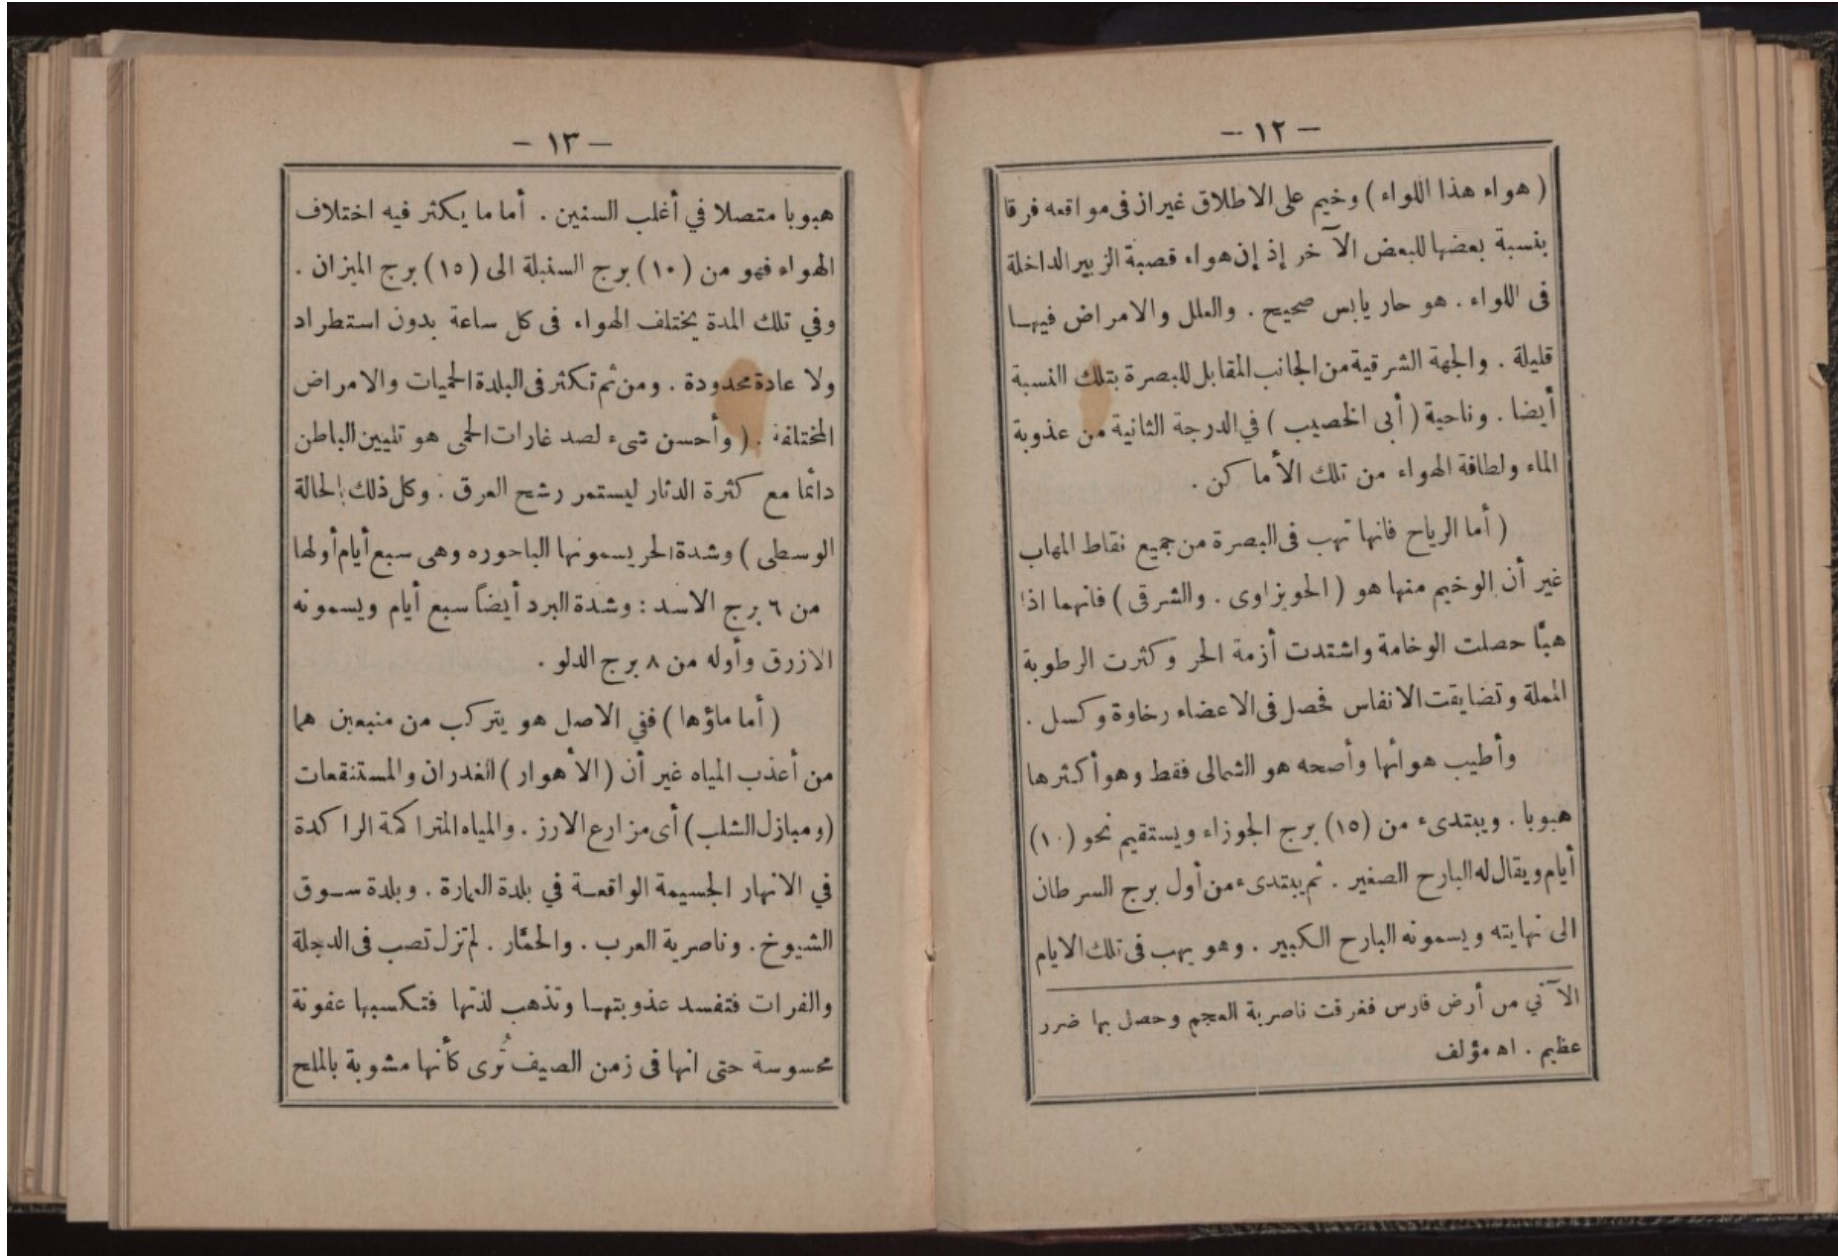 — ١٢ —
( هواء هذا اللواء ) وخيم على الاطلاق غيران فى مواقعه فرقا
بنسبة بعضها للبعض الآخر إذ إن هواء قصبة الزبير الداخلة
فى اللواء . هو حار يابس صحيح . والعلل والامراض فيها
قليلة . والجهة الشرقية من الجانب المقابل للبصرة بتلك النسبة
أيضا . وناحية ( أبى الخصيب ) في الدرجة الثانية من عذوبة
الماء ولطافة الهواء من تلك الأماكن .
( أما الرياح فانها تهب فى البصرة من جميع نقاط المهاب
غير أن الوخيم منها هو ( الحويزاوى . والشرقى ) فانهما اذا
هبّا حصلت الوخامة واشتدت أزمة الحر وكثرت الرطوبة
المملة وتضايقت الانفاس فحصل فى الاعضاء رخاوة وكسل .
وأطيب هوائها وأصحه هو الشمالى فقط وهو أكثرها
هبوبا . ويبتدىء من (١٥) برج الجوزاء ويستقيم نحو (١٠)
أيام ويقال له البارح الصغير . ثم يبتدىء من أول برج السرطان
الى نهايته ويسمونه البارح الكبير . وهو يهب فى تلك الايام
الآتي من أرض فارس فغرقت ناصرية العجم وحصل بها ضرر
عظيم . اه مؤلف
— ١٣ —
هبوبا متصلا في أغلب السنين . أما ما يكثر فيه اختلاف
الهواء فهو من (١٠) برج السنبلة الى (١٥) برج الميزان .
وفي تلك المدة يختلف الهواء فى كل ساعة بدون استطراد
ولا عادة محدودة . ومن ثم تكثر فى البلدة الحميات والامراض
المختلفة . ( وأحسن شىء لصد غارات الحمى هو تليين الباطن
دائما مع كثرة الدثار ليستمر رشح العرق . وكل ذلك بالحالة
الوسطى ) وشدة الحر يسمونها الباحوره وهى سبع أيام أولها
من ٦ برج الاسد : وشدة البرد أيضاً سبع أيام ويسمونه
الازرق وأوله من ٨ برج الدلو .
( أما ماؤها ) ففي الاصل هو يتركب من منبعين هما
من أعذب المياه غير أن ( الأهوار ) الغدران والمستنقعات
(ومبازل الشلب) أى مزارع الارز . والمياه المتراكمة الراكدة
في الانهار الجسيمة الواقعة في بلدة العمارة . وبلدة سوق
الشيوخ . وناصرية العرب . والحمّار . لم تزل تصب فى الدجلة
والفرات فتفسد عذوبتها وتذهب لذتها فتكسبها عفونة
محسوسة حتى انها فى زمن الصيف تُرى كأنها مشوبة بالملح